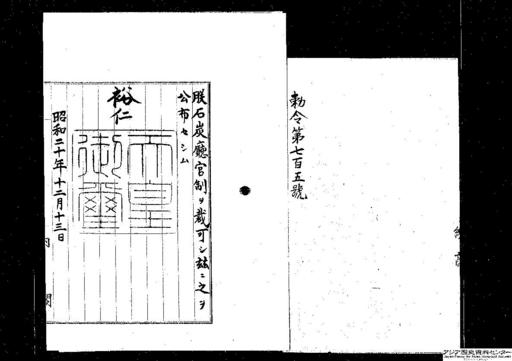 勅令第七百五號
朕石炭廳官制ヲ裁可シ茲ニ之ヲ
公布セシム
裕仁
天皇
御璽
昭和二十年十二月十三日
内閣
アジア歴史資料センター